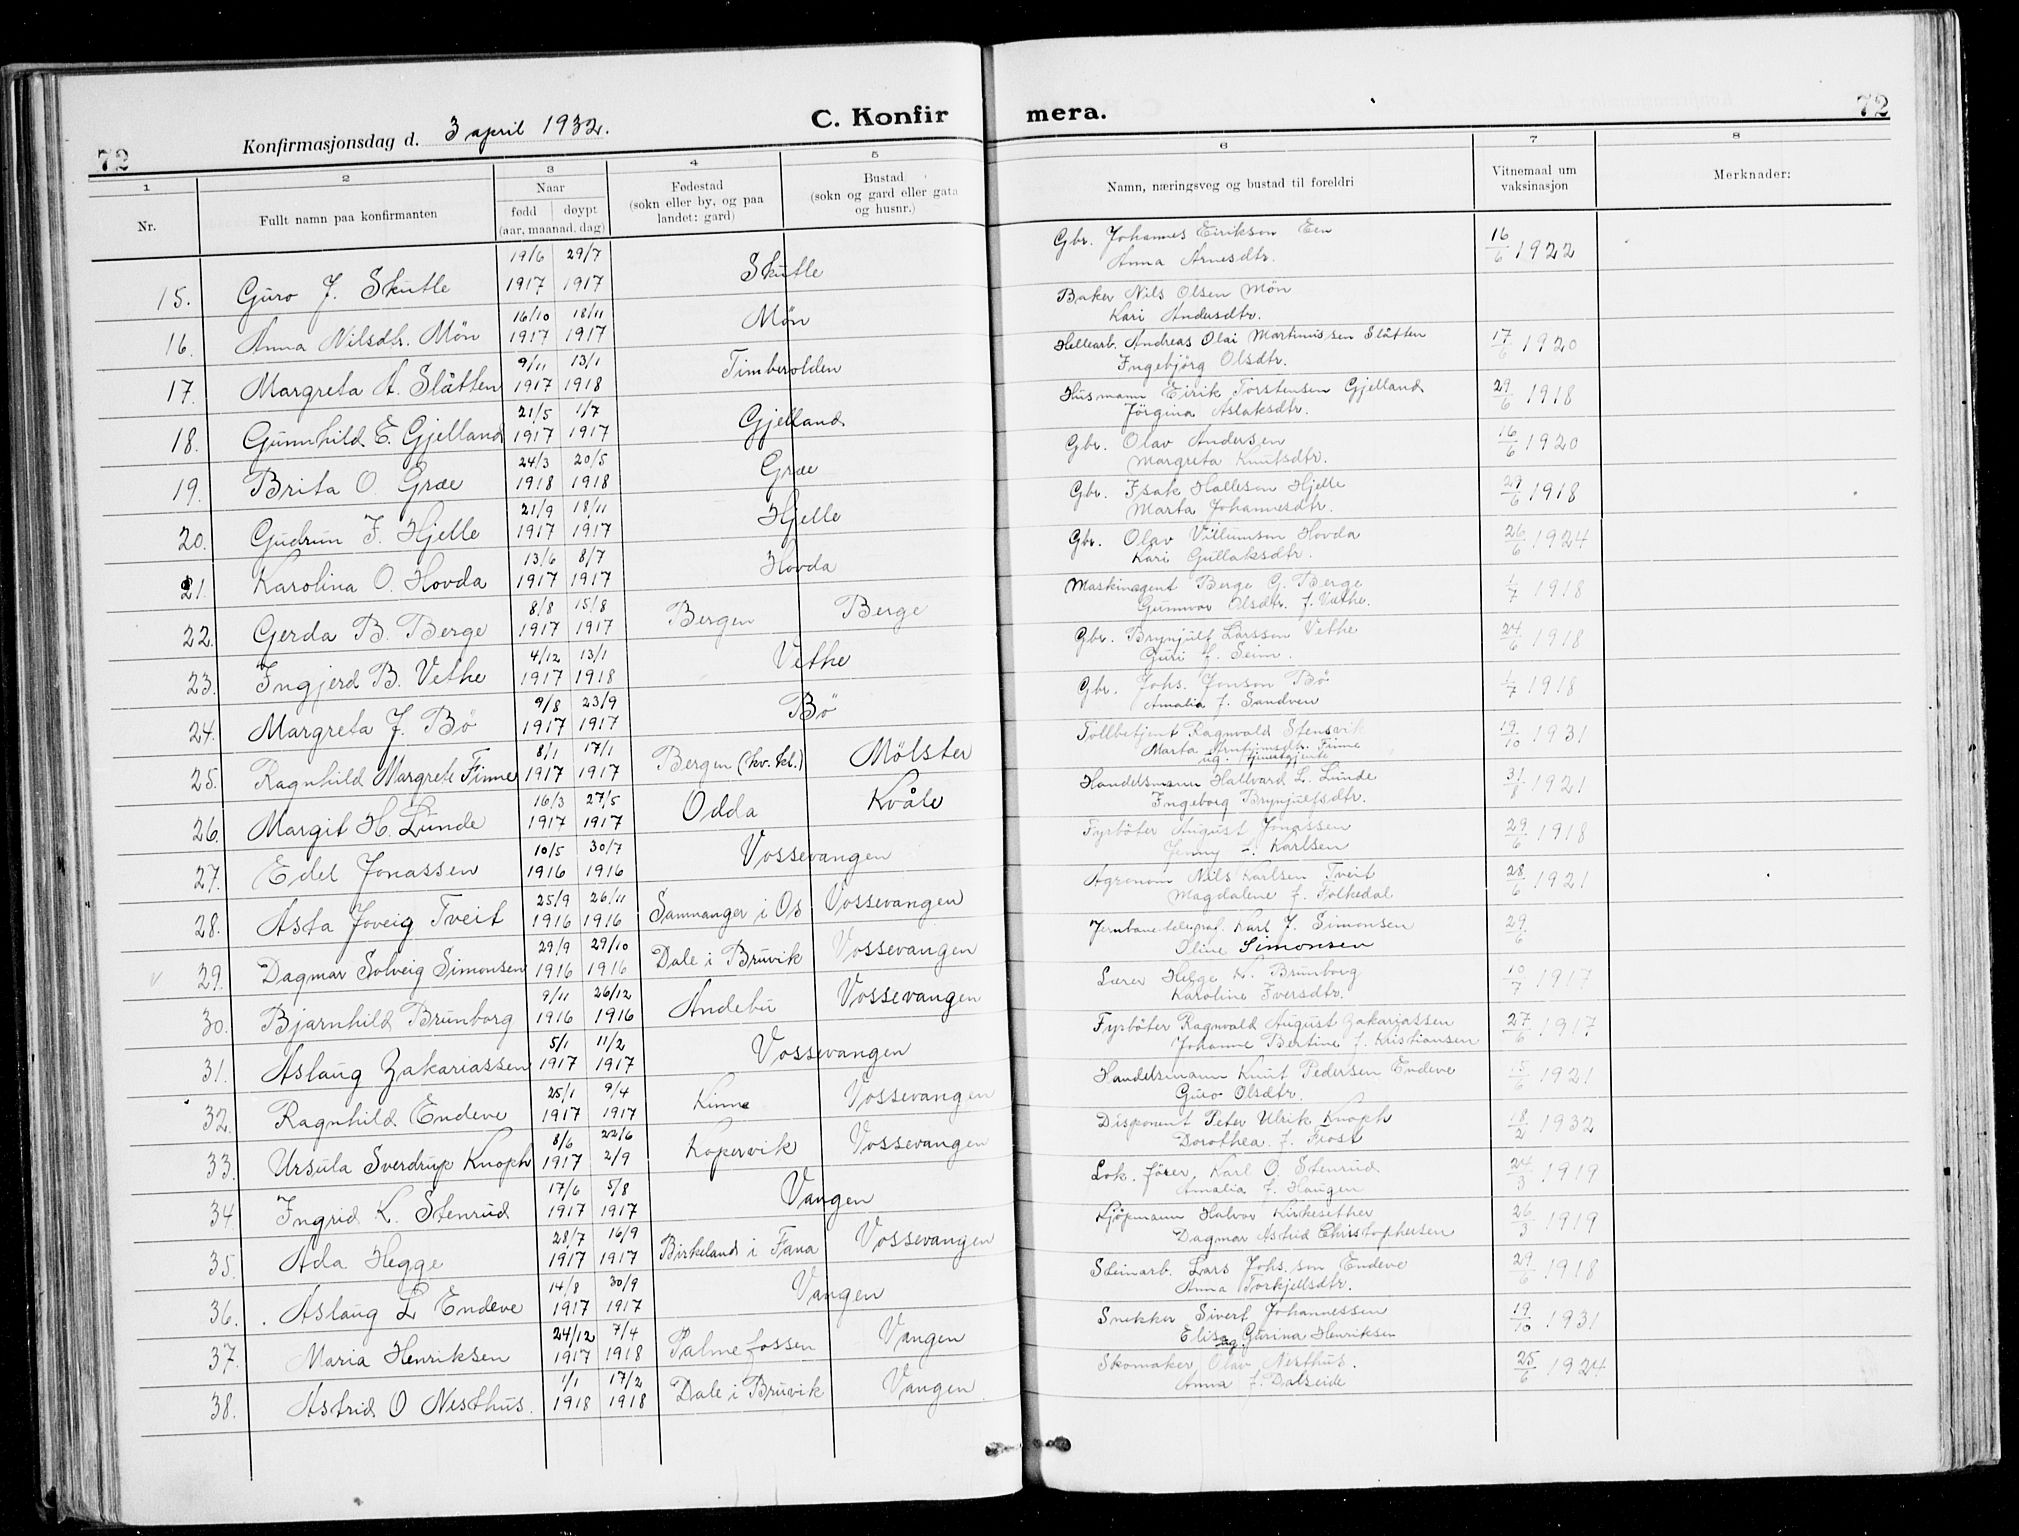 72 Konfirmasjonsdag d. 3 april 1932. C. Konfirmera. 72
1 2 3 4 5 6 7 8
Nr. Fullt namn paa konfirmanten Naar fødd døypt (aar, maanad, dag) Fødestad (sokn eller by, og paa landet: gard) Bustad (sokn og gard eller gata og husnr.) Namn, næringsveg og bustad til foreldri Vitnemaal um vaksinasjon Merknader:
15. Guro J. Skutle 19/6 1917 29/7 1917 Skutle Gbr. Johannes Eirikson Een 16/6 1922
Anna Arnesdtr.
16. Anna Nilsdtr. Møn 16/10 1917 18/11 1917 Møn Baker Nils Olsen Møn
Kari Andersdtr.
17. Margreta A. Slåtten 9/11 1917 13/1 1918 Timberolden Hellearb. Andreas Olai Martinussen Slåtten 17/6 1920
Ingebjörg Olsdtr.
18. Gunnhild E. Gjelland 21/5 1917 1/7 1917 Gjelland Husmann Eirik Torstensen Gjelland 29/6 1918
Jörgina Aslaksdtr.
19. Brita O Græ 24/3 1918 20/5 1918 Græ Gbr. Olav Andersen 16/6 1920
Margreta Knutsdtr.
20. Gudrun I. Hjelle 21/9 1917 18/11 1917 Hjelle Gbr. Isak Halleson Hjelle 29/6 1918
Marta Johannesdtr.
21. Karolina O. Hovda 13/6 1917 8/7 1917 Hovda Gbr. Olav Villumson Hovda 26/6 1924
Kari Gullaksdtr.
22. Gerda B. Berge 8/8 1917 15/8 1917 Bergen Berge Maskinagent Berge G. Berge 1/7 1918
Gunnvor Olsdtr. f. Vethe.
23. Ingjerd B. Vethe 4/12 1917 13/1 1918 Vethe Gbr. Brynjulf Larsson Vethe 24/6 1918
Guri f. Seim.
24. Margreta J. Bö 9/8 1917 23/9 1917 Bö Gbr. Johs. Jonson Bö 1/7 1918
Amalia f. Sandven
25. Ragnhild Margrete Finne 8/1 1917 17/1 1917 Bergen (kv. kl.) Mölster Tollbetjent Ragnvald Stensvik 19/10 1931
Marta Arnfinnsdtr. Finne
ug. tjenestjente
26. Margit H. Lunde 16/3 1917 27/5 1917 Odda Kvåle Handelsmann Hallvard L. Lunde 1921
Ingeborg Brynjulfsdtr.
27. Edel Jonassen 10/5 1916 30/7 1916 Vossevangen Fyrböter August Jonassen 29/6 1918
Jenny f. Karlsen
28. Asta Joveig Tveit 25/9 1916 26/11 1916 Samnanger i Os Vossevangen Agronom Nils Karlsen Tveit 28/6 1921
Magdalene f. Folkedal
29. Dagmar Solveig Simonsen 29/9 1916 29/10 1916 Dale i Bruvik Vossevangen Jernbanetelegraf. Karl J. Simonsen 29/6
Oline Simonsen
30. Bjarnhild Brunborg 9/11 1916 26/12 1916 Andebu Vossevangen Lærer Helge K. Brunborg 10/7 1917
Karoline Iversdtr.
31. Aslaug Zakariassen 5/1 1917 11/2 1917 Vossevangen Fyrböter Ragnvald August Zakariassen 27/6 1917
Johanne Bertine f. Kristiansen
32. Ragnhild Endeve 25/1 1917 9/4 1917 Kinne Vossevangen Handelsmann Knut Pedersen Endeve 15/6 1921
Guro Olsdtr.
33. Ursula Sverdrup Knoph 8/6 1917 22/6 2/9 Kopervik Vossevangen Disponent Peter Ulrik Knoph 18/2 1932
Dorothea f. Frost
34. Ingrid K. Stenrud 17/6 1917 5/8 1917 Vangen Lok. förer Karl O. Stenrud 24/3 1919
Amalia f. Haugen
35. Ada Hegge 28/7 1917 16/9 1917 Birkeland i Fana Vossevangen Kjøpmann Halvor Kirkesether 26/3 1919
Dagmar Astrid Christophersen
36. Aslaug L Endeve 14/8 1917 30/9 1917 Vangen Steinarb. Lars Johs.son Endeve 29/6 1918
Anna Torkjellsdtr.
37. Maria Henriksen 24/12 1917 7/4 1918 Palmefossen Vangen Snekker Sivert Johannessen 19/10 1931
Elise Gurina Henriksen
ug.
38. Astrid O Nesthus. 1/1 1918 17/2 1918 Dale i Bruvik Vangen Skomaker Olav Nesthus. 25/6 1924
Anna f. Dalseide